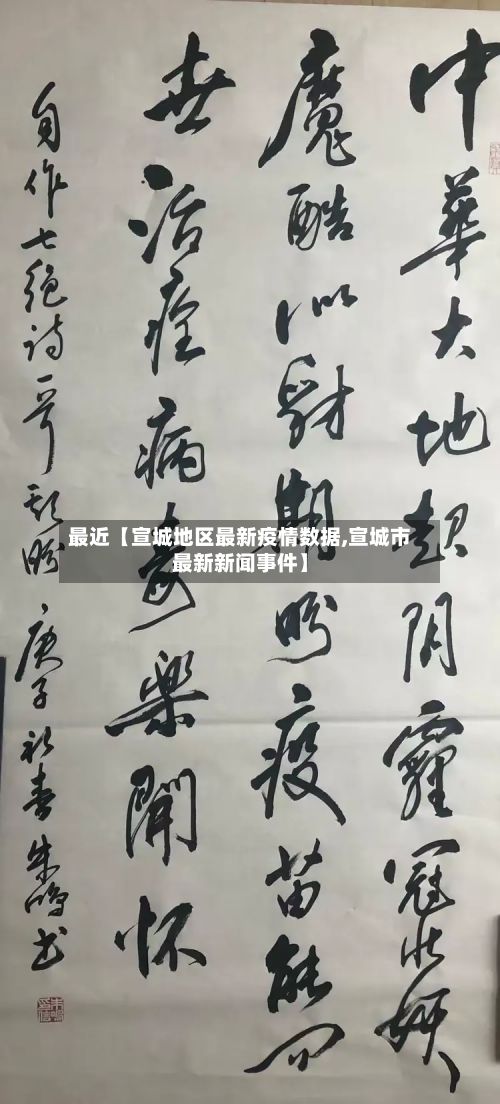 中華大地起阴霾冠状妖
魔酷似豺期盼疫苗能问
世治痊病毒樂開怀
自作七绝诗一首盼庚子初春朱鸣书
最近【宣城地区最新疫情数据,宣城市
最新新闻事件】